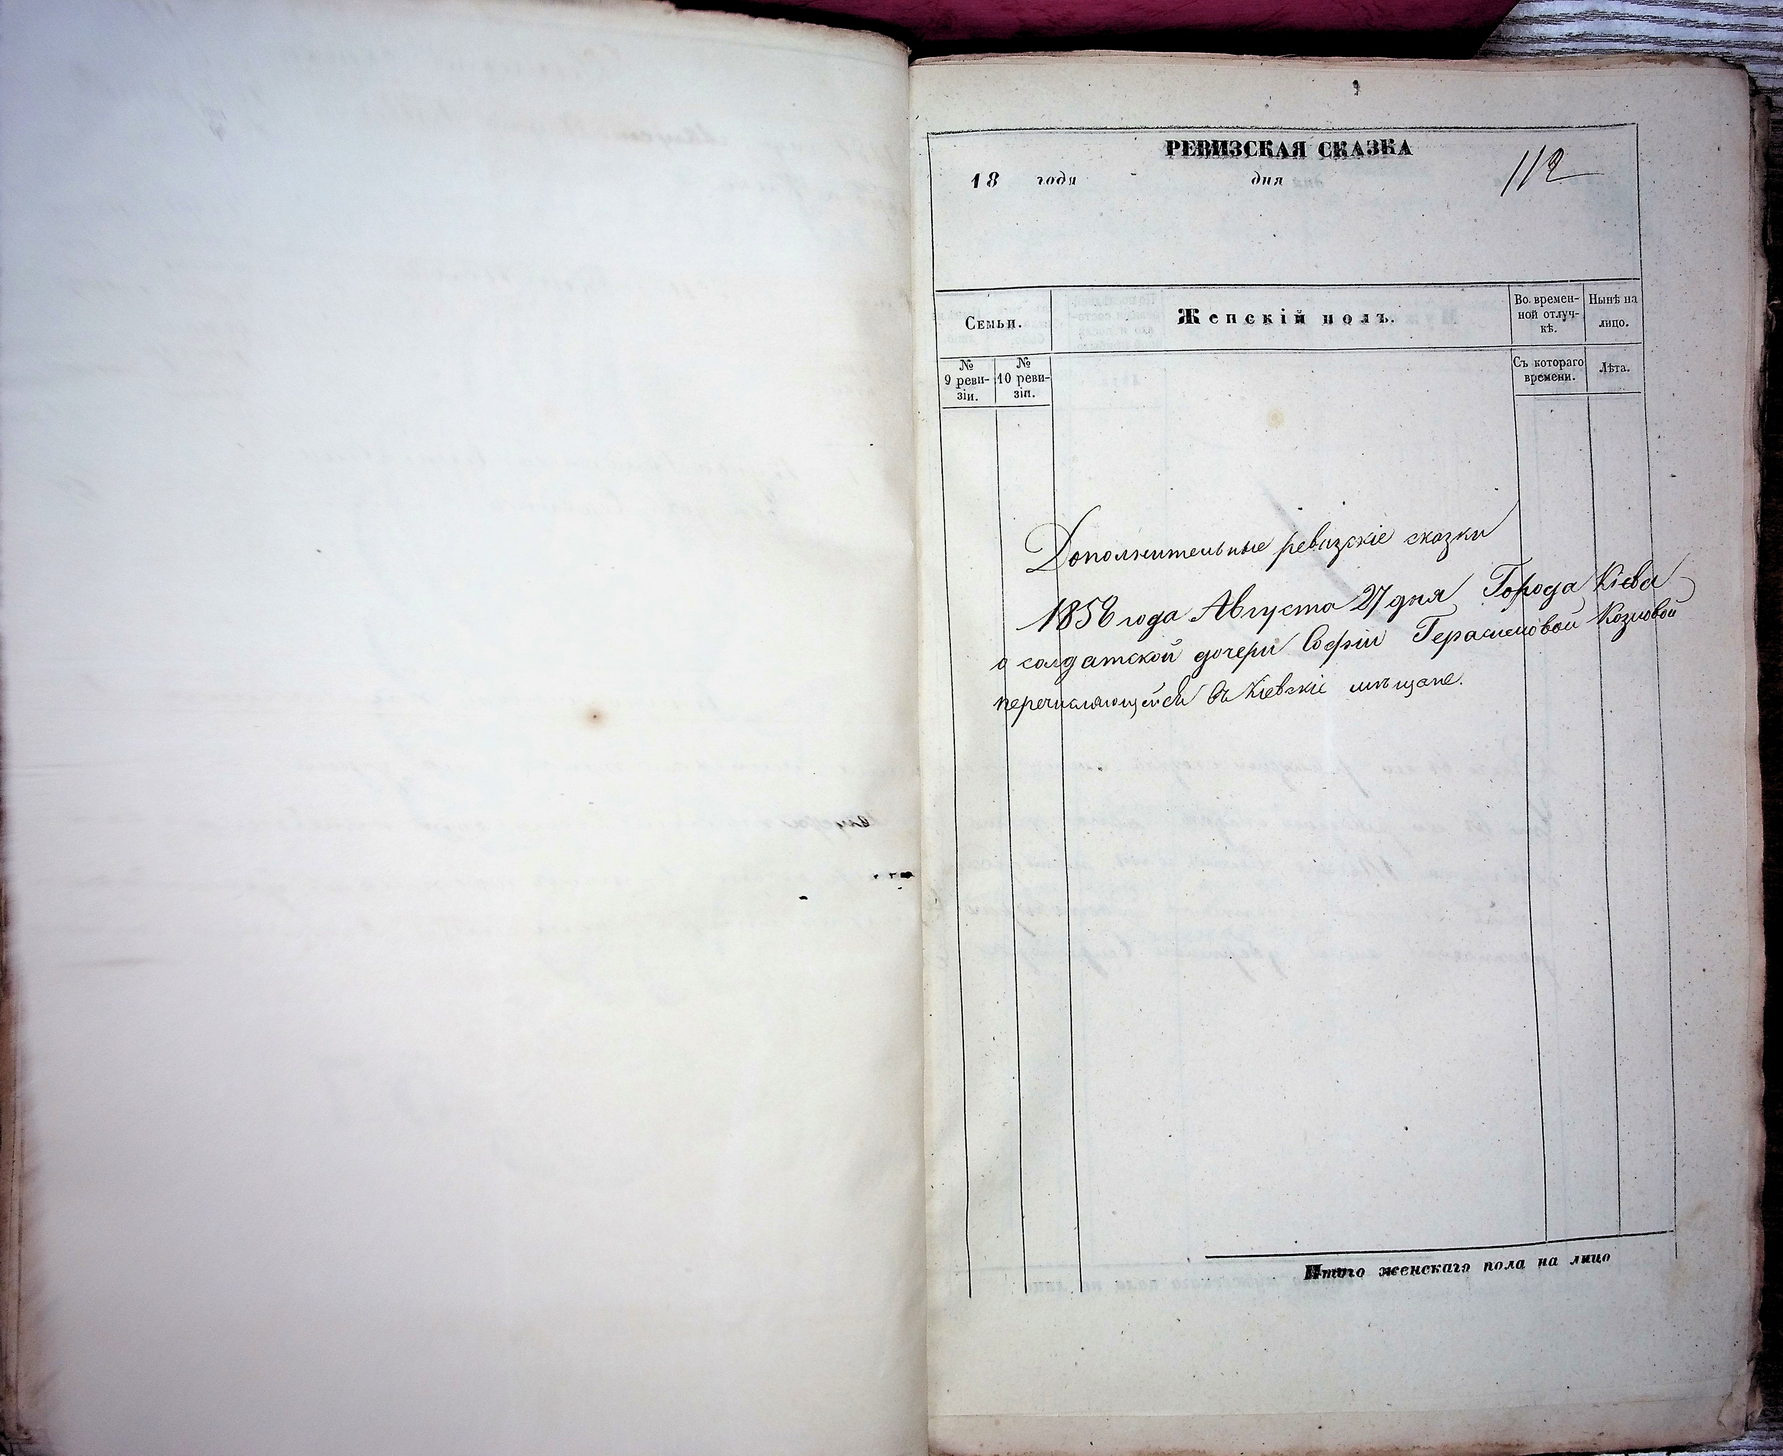 РЕВИЗСКАЯ СКАЗКА
18 года дня
112
Семьи.
Женскій полъ.
Во. времен-
ной отлуч-
кѣ.
Нынѣ на
лицо.
№
9 реви-
зіи.
№
10 реви-
зіи.
Съ котораго
времени.
Лѣта.
Дополнительные ревизскіе сказки
1858 года Августа 27 дня Города Кіева
о солдатской дочери Софіи Герасимовой Козловой
перечисляющейся въ Кіевскіе мѣщане.
Итого женскаго пола на лицо